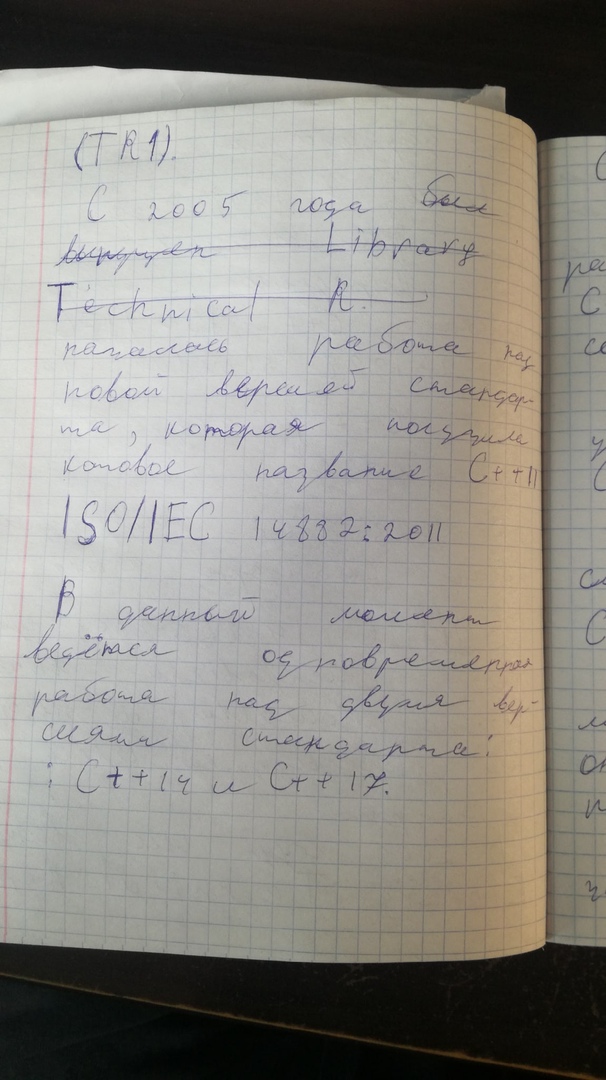 (TR1).
С 2005 года был
выпущен Library
Technical R.
началась работа над
новой версией стандар-
та, которая получила
кодовое название C++11
ISO/IEC 14882:2011
В данный момент
ведётся одновременная
работа над двумя вер-
сиями стандарта:
: C++14 и C++17.